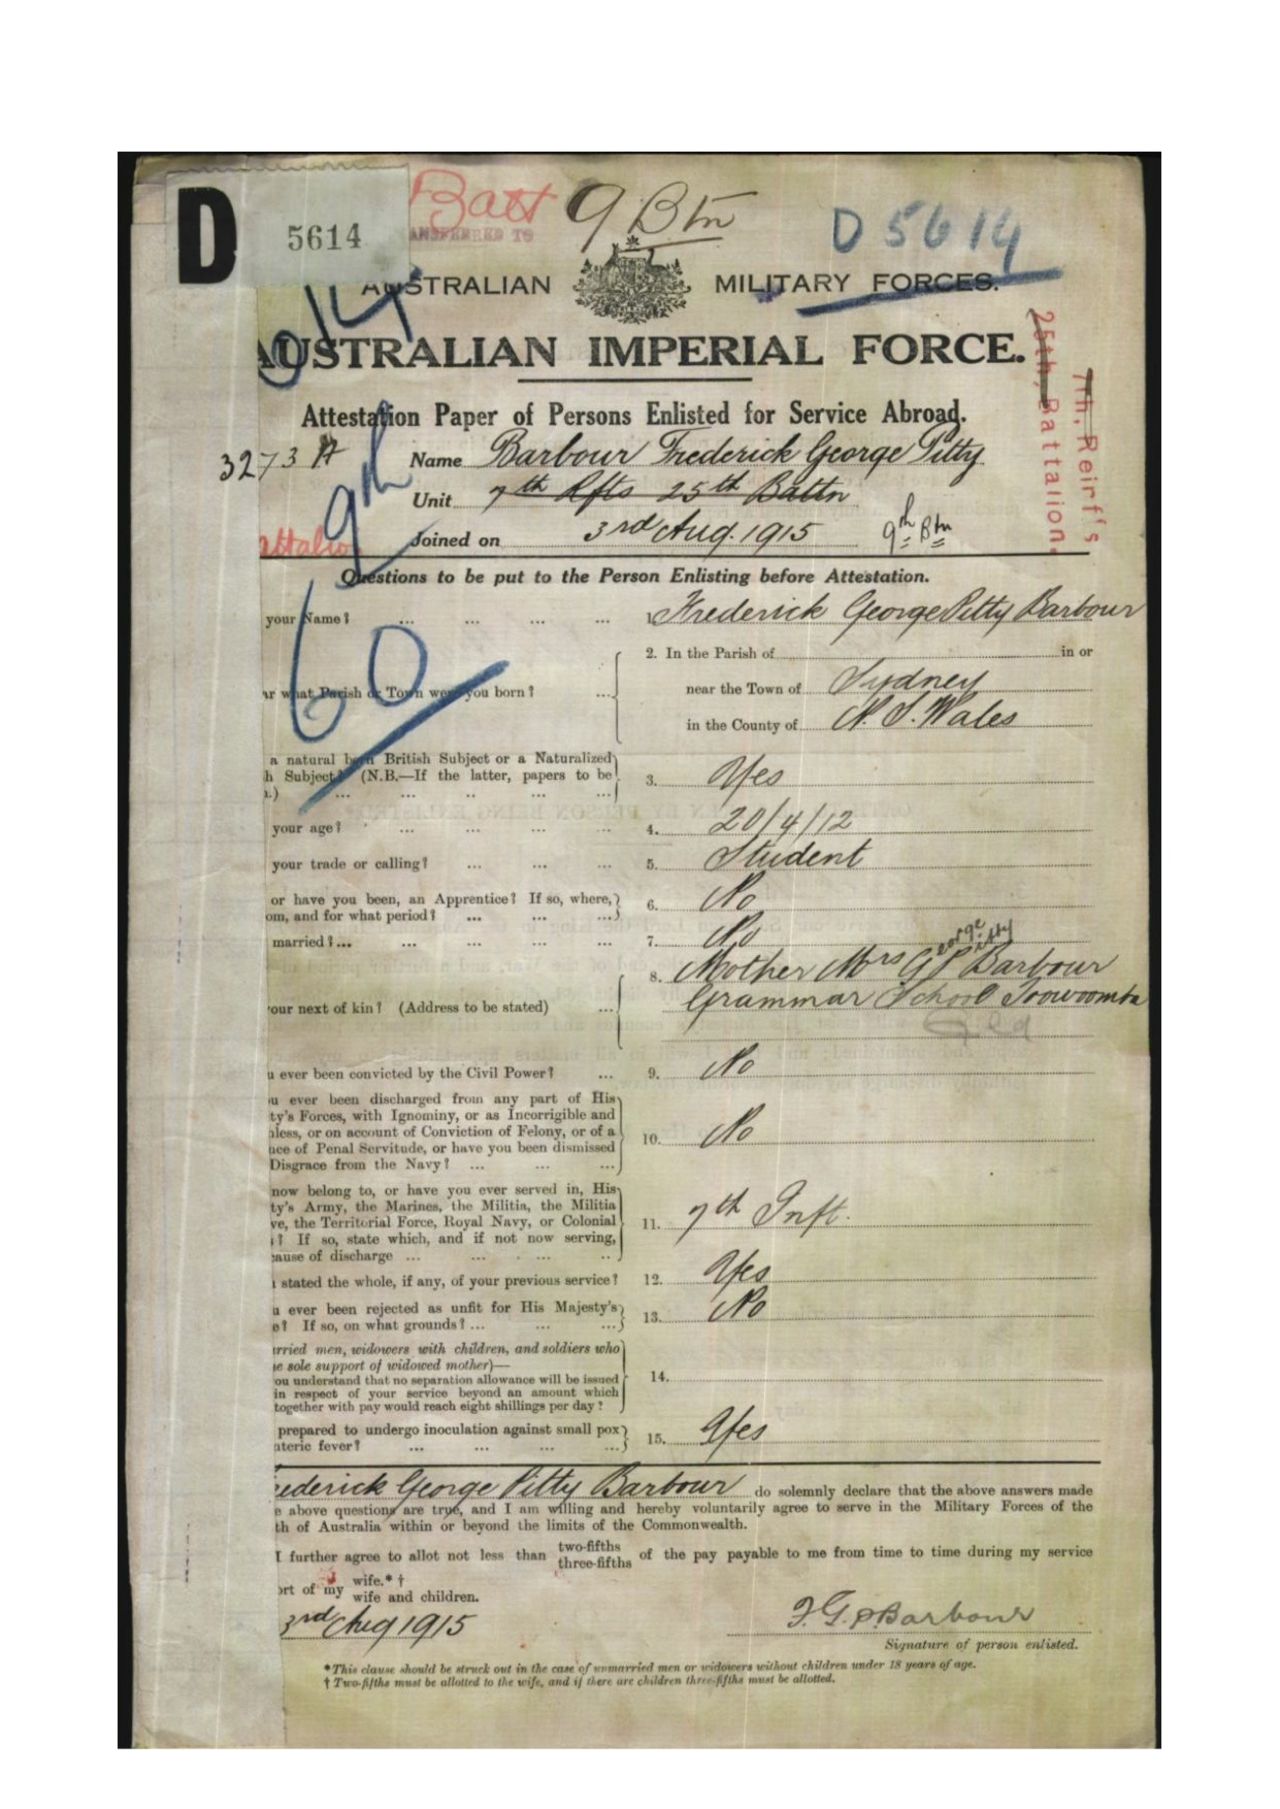 D
5614
Batt
9 Btn
D 5614
ANSFERRED TO
AUSTRALIAN MILITARY FORCES.
AUSTRALIAN IMPERIAL FORCE.
25th, Battalion.
7th, Reinf's
Attestation Paper of Persons Enlisted for Service Abroad.
3273 A
Name Barbour Frederick George Pitty
9th
Unit 7th Rfts 25th Battn
attalio
Joined on 3rd Aug. 1915 9th Btn
Questions to be put to the Person Enlisting before Attestation.
your Name? ... ... ... ... 1. Frederick George Pitty Barbour
60
2. In the Parish of in or
ar what Parish or Town were you born? ... near the Town of Sydney
in the County of N. S. Wales
a natural born British Subject or a Naturalized
h Subject? (N.B.—If the latter, papers to be 3. Yes
.) ... ... .. ... ...
your age? ... ... ... ... 4. 20/4/12
your trade or calling? ... ... ... 5. Student
or have you been, an Apprentice? If so, where,
om, and for what period? ... ... ... 6. No
married?... ... ... ... ... 7. No
8. Mother Mrs George Pitty Barbour
our next of kin? (Address to be stated) ... Grammar School Toowoomba
Qld
u ever been convicted by the Civil Power? ... 9. No
u ever been discharged from any part of His
ty's Forces, with Ignominy, or as Incorrigible and
hless, or on account of Conviction of Felony, or of a
nce of Penal Servitude, or have you been dismissed 10. No
Disgrace from the Navy? ... ... ...
now belong to, or have you ever served in, His
ty's Army, the Marines, the Militia, the Militia
ve, the Territorial Force, Royal Navy, or Colonial 11. 7th Inft.
? If so, state which, and if not now serving,
cause of discharge ... ... ... ..
stated the whole, if any, of your previous service? 12. Yes
u ever been rejected as unfit for His Majesty's 13. No
e? If so, on what grounds? ... ... ...
rried men, widowers with children, and soldiers who
e sole support of widowed mother)—
ou understand that no separation allowance will be issued 14.
in respect of your service beyond an amount which
together with pay would reach eight shillings per day?
prepared to undergo inoculation against small pox 15. Yes
nteric fever? ... ... ... ...
ederick George Pitty Barbour do solemnly declare that the above answers made
e above questions are true, and I am willing and hereby voluntarily agree to serve in the Military Forces of the
th of Australia within or beyond the limits of the Commonwealth.
I further agree to allot not less than two-fifths three-fifths of the pay payable to me from time to time during my service
ort of my wife.* † wife and children.
3rd Aug 1915 F.G.P.Barbour
Signature of person enlisted.
*This clause should be struck out in the case of unmarried men or widowers without children under 18 years of age.
† Two-fifths must be allotted to the wife, and if there are children three-fifths must be allotted.